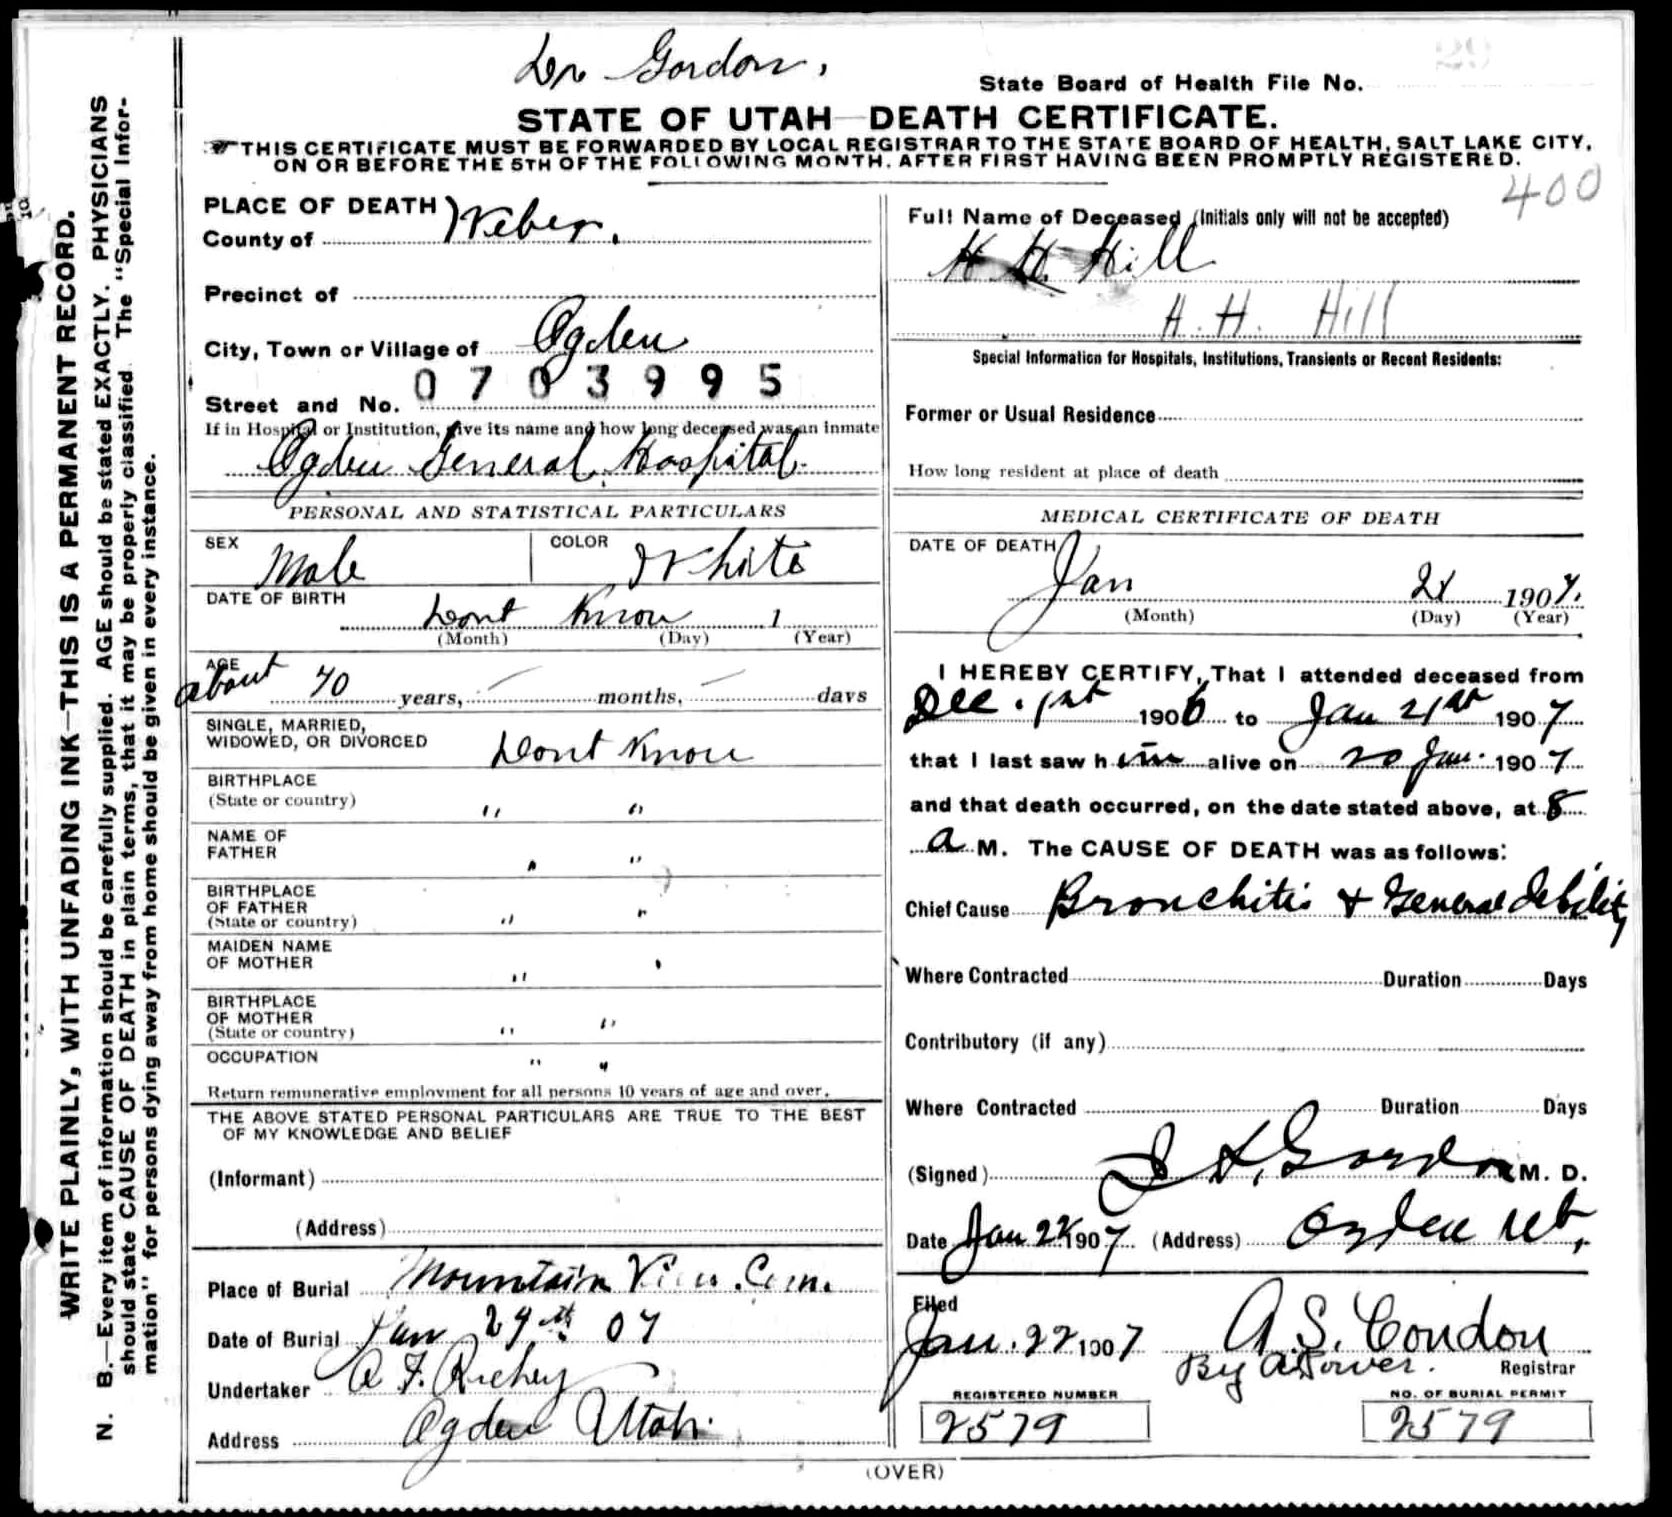 Dr Gordon,
State Board of Health File No.
29
STATE OF UTAH—DEATH CERTIFICATE.
☞THIS CERTIFICATE MUST BE FORWARDED BY LOCAL REGISTRAR TO THE STATE BOARD OF HEALTH, SALT LAKE CITY,
ON OR BEFORE THE 5TH OF THE FOLLOWING MONTH, AFTER FIRST HAVING BEEN PROMPTLY REGISTERED.
400
WRITE PLAINLY, WITH UNFADING INK—THIS IS A PERMANENT RECORD.
N. B.—Every item of information should be carefully supplied. AGE should be stated EXACTLY. PHYSICIANS
should state CAUSE OF DEATH in plain terms, that it may be properly classified. The "Special Infor-
mation" for persons dying away from home should be given in every instance.
PLACE OF DEATH
County of Weber.
Precinct of
City, Town or Village of Ogden
0703995
Street and No.
If in Hospital or Institution, give its name and how long deceased was an inmate
Ogden General Hospital.
PERSONAL AND STATISTICAL PARTICULARS
SEX Male COLOR White
DATE OF BIRTH Dont Know 1
(Month) (Day) (Year)
AGE
about 70 years, — months, — days
SINGLE, MARRIED,
WIDOWED, OR DIVORCED Dont Know
BIRTHPLACE
(State or country) " "
NAME OF
FATHER " "
BIRTHPLACE
OF FATHER
(State or country) " "
MAIDEN NAME
OF MOTHER " "
BIRTHPLACE
OF MOTHER
(State or country) " "
OCCUPATION " "
Return remunerative employment for all persons 10 years of age and over.
THE ABOVE STATED PERSONAL PARTICULARS ARE TRUE TO THE BEST
OF MY KNOWLEDGE AND BELIEF
(Informant)
(Address)
Place of Burial Mountain View Cem.
Date of Burial Jan 24th 07
Undertaker A. F. Richey
Address Ogden Utah.
Full Name of Deceased (Initials only will not be accepted)
H H Hill
H. H. Hill
Special Information for Hospitals, Institutions, Transients or Recent Residents:
Former or Usual Residence
How long resident at place of death
MEDICAL CERTIFICATE OF DEATH
DATE OF DEATH
Jan 21 1907.
(Month) (Day) (Year)
I HEREBY CERTIFY, That I attended deceased from
Dec. 1st 1906 to Jan 21st 1907
that I last saw him alive on 20 Jan. 1907
and that death occurred, on the date stated above, at 8
a M. The CAUSE OF DEATH was as follows:
Chief Cause Bronchitis & General debility
Where Contracted Duration Days
Contributory (if any)
Where Contracted Duration Days
(Signed) Gordon M. D.
Date Jan 22 1907 (Address) Ogden Ut,
Filed
Jan. 22 1907 A. S. Condon
By Registrar
REGISTERED NUMBER
2579
NO. OF BURIAL PERMIT
2579
(OVER)